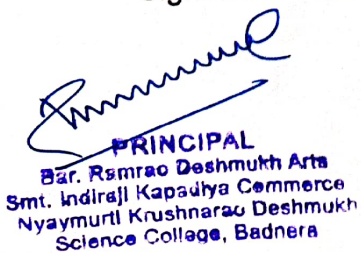 PRINCIPAL
Bar. Ramrao Deshmukh Arts
Smt. Indiraji Kapadiya Commerce
Nyaymurti Krushnarao Deshmukh
Science College, Badnera